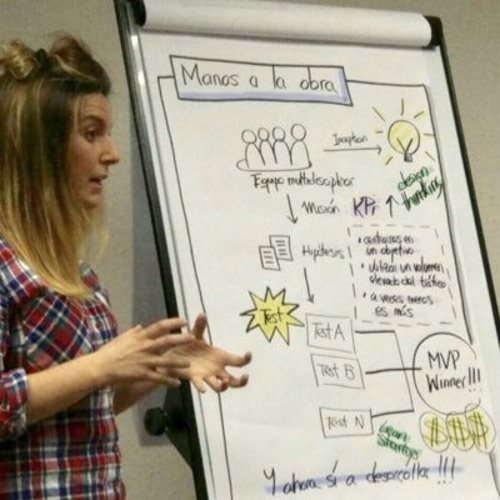 Manos a la obra
Inception
Equipo multidisciplinar
design
thinking
Misión
KPI
Hipótesis
• centrarnos en
un objetivo
• utilizar un volumen
elevado del tráfico
• a veces menos
es más
Test
Test A
Test B
Test N
MVP
Winner!!!
$ $ $
lean
startup
Y ahora sí a desarrollar!!!